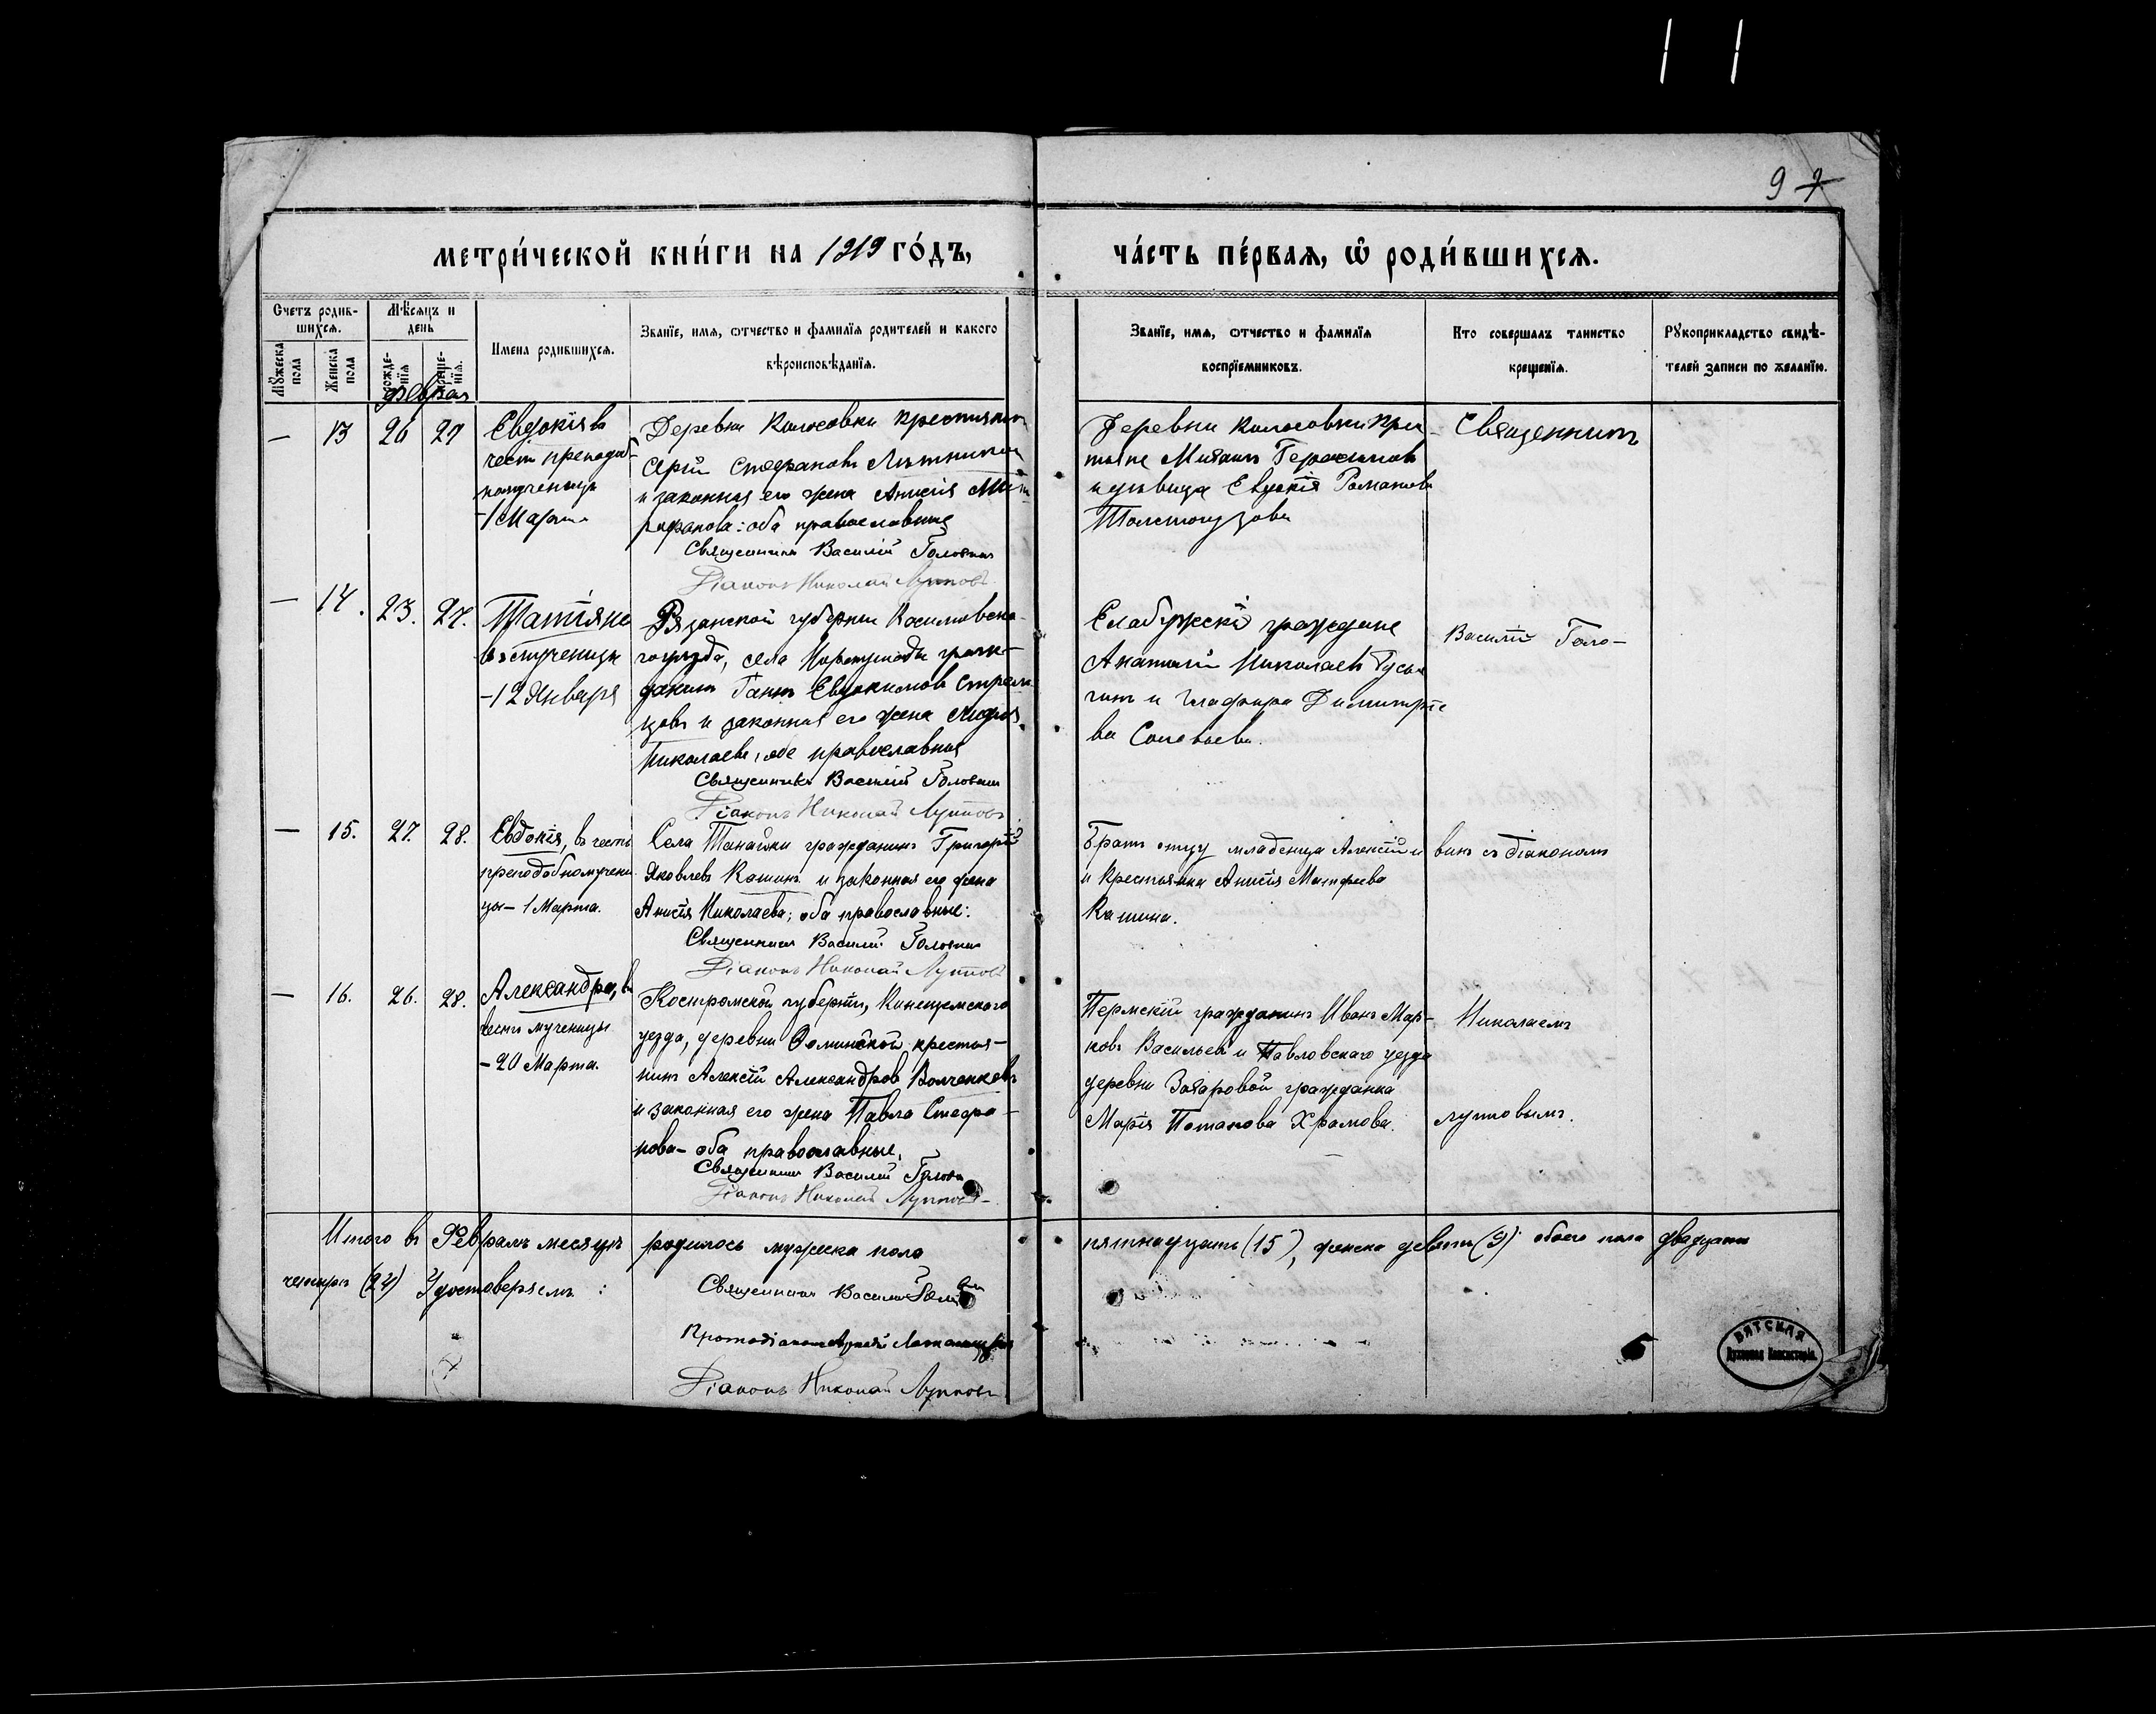 9
метри́ческой кни́ги на 1919 го́дъ,
ча́сть пе́рвая, ѽ роди́вшихсѧ.
Счетъ родив-
шихсѧ.
Мѣсѧцъ и
день
Имена родившихсѧ.
Званїе, имѧ, ѿтчество и фамилїѧ родителей и какого
вѣроисповѣданїѧ.
Званїе, имѧ, ѿтчество и фамилїѧ
воспрїемниковъ.
Кто совершалъ таинство
крещенїѧ.
Рꙋкоприкладство свидѣ-
телей записи по желанїю.
Мꙋжеска
пола
Женска
пола
рожде-
нїѧ
креще-
нїѧ.
— 13 26 27
Евдокія въ
честь преподоб-
номученицы
-1 Марта
Деревни Колосовки крестьянин
Стефановъ
и законная его жена Анисія Мит
рофанова: оба православные
Священникъ Василій Головин
Діаконъ Николай Лупповъ
Деревни Колосовки крес-
Михаилъ Герасимовъ
и девица Евдокія Романова
Священникъ
— 14. 23. 27.
Татіана
мученицы
-12 Января
Рязанской губерніи Касимовска-
го уезда, села граж-
данинъ Евдокимовъ Стрель
цовъ и законная его жена
Николаева, обе православныя
Священникъ Василій Головин
Діаконъ Николай Лупповъ
Елабужскій гражданe
Анатолій Николаевъ
и Глафира Димитріе
ва Соловьева.
Василій Голо-
— 15. 27. 28.
Евдокія, въ честь
преподобномучени
цы- 1 Марта.
Села Танайки гражданинъ Григорій
Яковлевъ Кашинъ и законная его жена
Анисія Николаева; оба православные:
Священникъ Василій Головин
Діаконъ Николай Лупповъ
Братъ отцу младенца Алексій и
и крестьянка Анисія Матфеева
Кашина.
винъ съ діакономъ
— 16. 26. 28.
Александра, въ
честь мученицы
- 20 Марта.
Костромской губерніи, Кинешемского
уезда, деревни крестья-
нинъ Алексій Александров Волченковъ
и законная его жена Павла Стефа-
нова- оба православные.
Священникъ Василій Голови
Діаконъ Николай Лупповъ
Пермскій гражданинъ Иванъ Мар-
ковъ Васильев и Павловскаго уезда
деревни Захаровой гражданка
Марія Потапова Храмова.
Николаемъ
Лупповымъ.
Итого въ Февралѣ месяцѣ родилось мужеска пола
пятнадцать (15), женска девять (9) обоего пола двадцать
четыре (24) Удостоверяемъ:
Священникъ Василій Головин
Протодіаконъ
Діаконъ Николай Лупповъ
ВЯТСКАЯ
Духовная Консисторія.